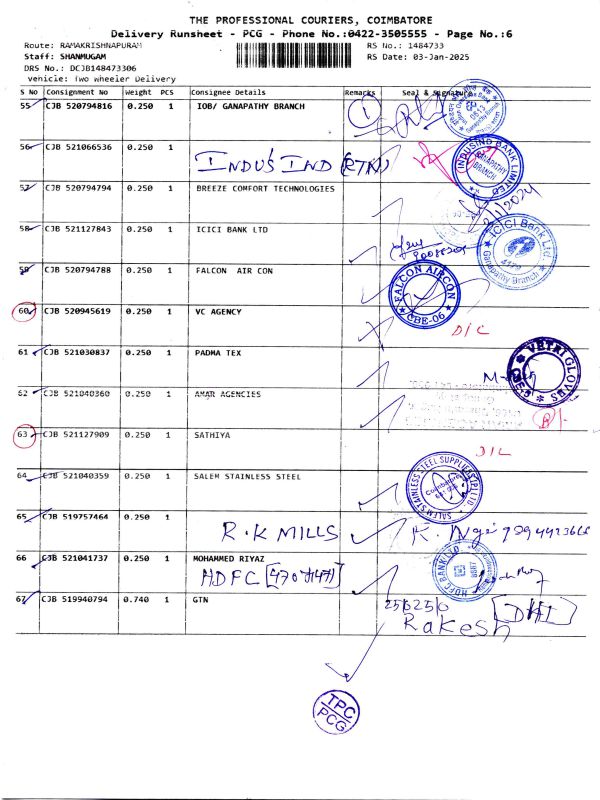 THE PROFESSIONAL COURIERS, COIMBATORE
Delivery Runsheet - PCG - Phone No.:0422-3505555 - Page No.:6
Route: RAMAKRISHNAPURAM RS No.: 1484733
Staff: SHANMUGAM RS Date: 03-Jan-2025
DRS No.: DCJB148473306
Vehicle: Two Wheeler Delivery
S No Consignment No Weight PCS Consignee Details Remarks Seal & Signature
55 CJB 520794816 0.250 1 IOB/ GANAPATHY BRANCH 1
56 CJB 521066536 0.250 1 INDUS IND (RTN) INDUSIND BANK LIMITED GANAPATHY BRANCH
57 CJB 520794794 0.250 1 BREEZE COMFORT TECHNOLOGIES
58 CJB 521127843 0.250 1 ICICI BANK LTD ICICI Bank Ltd. Ganapathy Branch
59 CJB 520794788 0.250 1 FALCON AIR CON FALCON AIRCON CBE-06
60 CJB 520945619 0.250 1 VC AGENCY D/C
61 CJB 521030837 0.250 1 PADMA TEX VETRI GLOVES CBE-6
62 CJB 521040360 0.250 1 AMAR AGENCIES
63 CJB 521127909 0.250 1 SATHIYA D/L
64 CJB 521040359 0.250 1 SALEM STAINLESS STEEL SALEM STAINLESS STEEL SUPPLIERS (P) LTD Coimbatore
65 CJB 519757464 0.250 R.K MILLS
66 CJB 521041737 0.250 1 MOHAMMED RIYAZ
HDFC HDFC BANK LTD
67 CJB 519940794 0.740 1 GTN 25/625/0
Rakesh
TPC
PCG